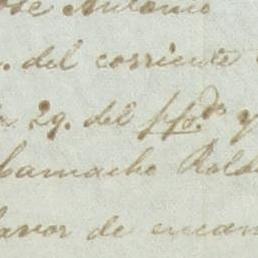 ose Antonio
. del corriente
29. del ppdo. y
Camacho Rold
favor de encan